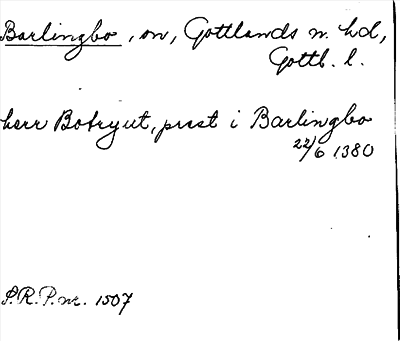 Barlingbo, sn, Gottlands n. hd,
Gottl. l.
herr Botryut, præst i Barlingbo
22/6 1380
S.R.P. nr. 1507